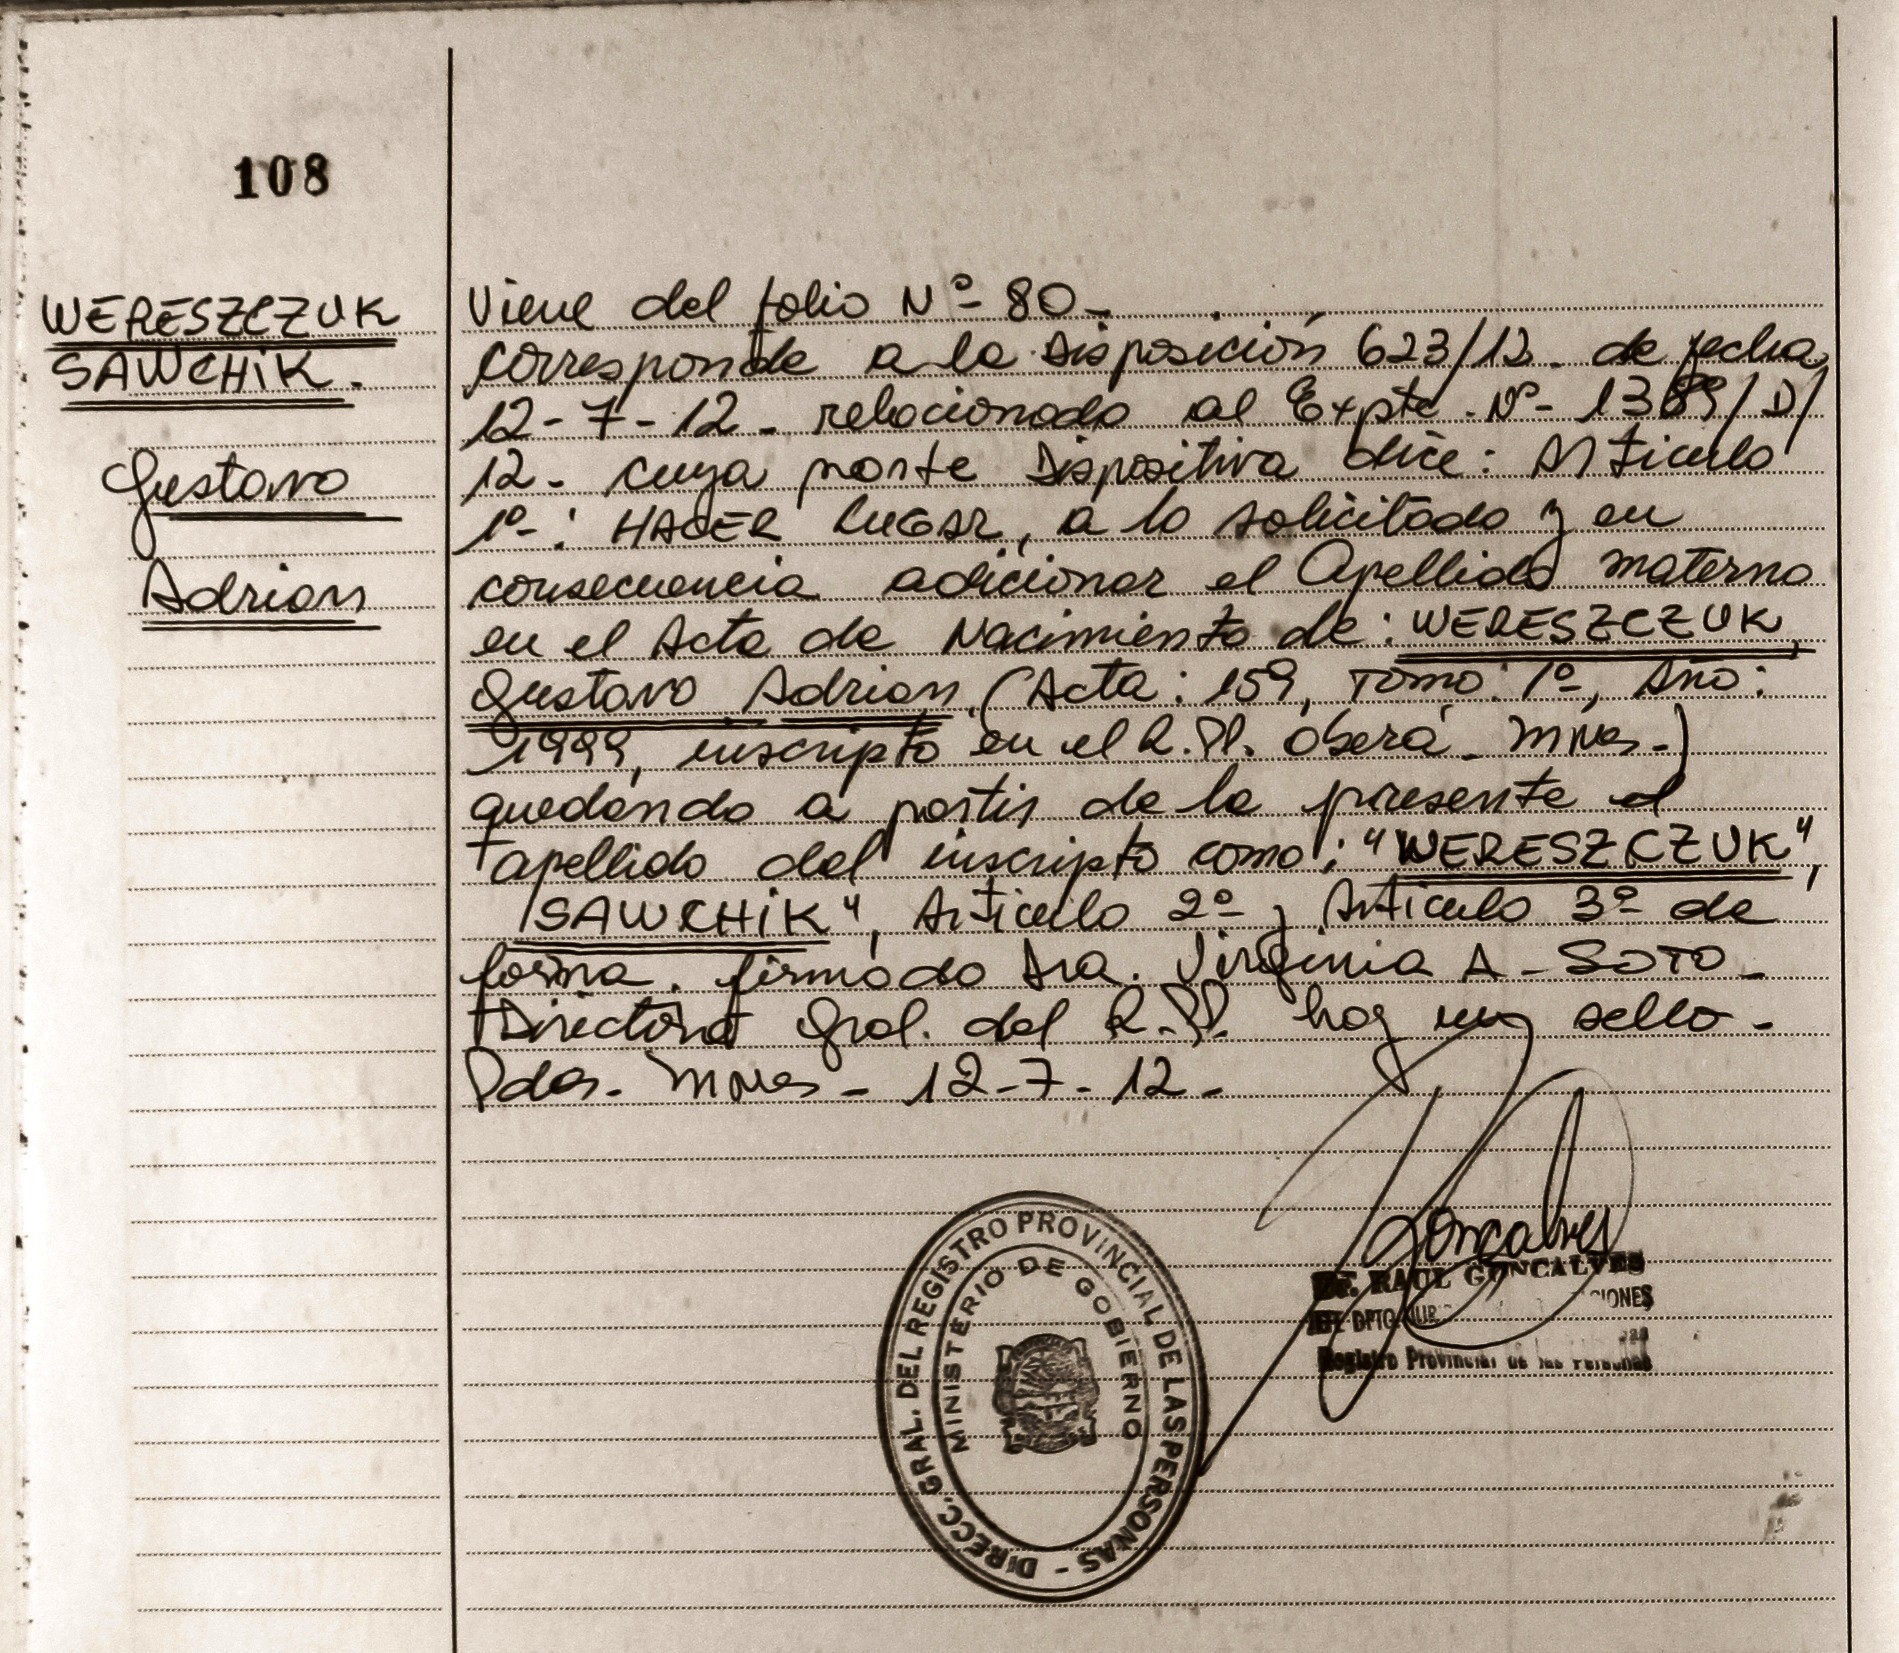 108
WERESZCZUK
SAWCHIK.
Gustavo
Adrian
Viene del folio Nº- 80-
corresponde a la Disposición 623/12. de fecha
12-7-12- relacionado al Expte. Nº- 1389/D/
12- cuya parte Dispositiva dice: Articulo
1º-: HACER LUGAR, a lo solicitado y en
consecuencia adicionar el Apellido materno
en el Acta de Nacimiento de: WERESZCZUK,
Gustavo Adrian, (Acta: 159, Tomo: 1º-, Año:
1999, inscripto en el R.PP. Oberá- Mnes.)
quedando a partir de la presente el
apellido del inscripto como: "WERESZCZUK",
"SAWCHIK", Articulo 2º- y Articulo 3º- de
forma. firmado Dra. Virginia A- SOTO-
Directora Gral. del R.PP. hay un sello-
Pdas. Mnes- 12-7-12-
DIRECC. GRAL. DEL REGISTRO PROVINCIAL DE LAS PERSONAS -
MINISTERIO DE GOBIERNO
Goncalves
RAUL GONCALVES
DPTO
Registro Provincial de las Personas